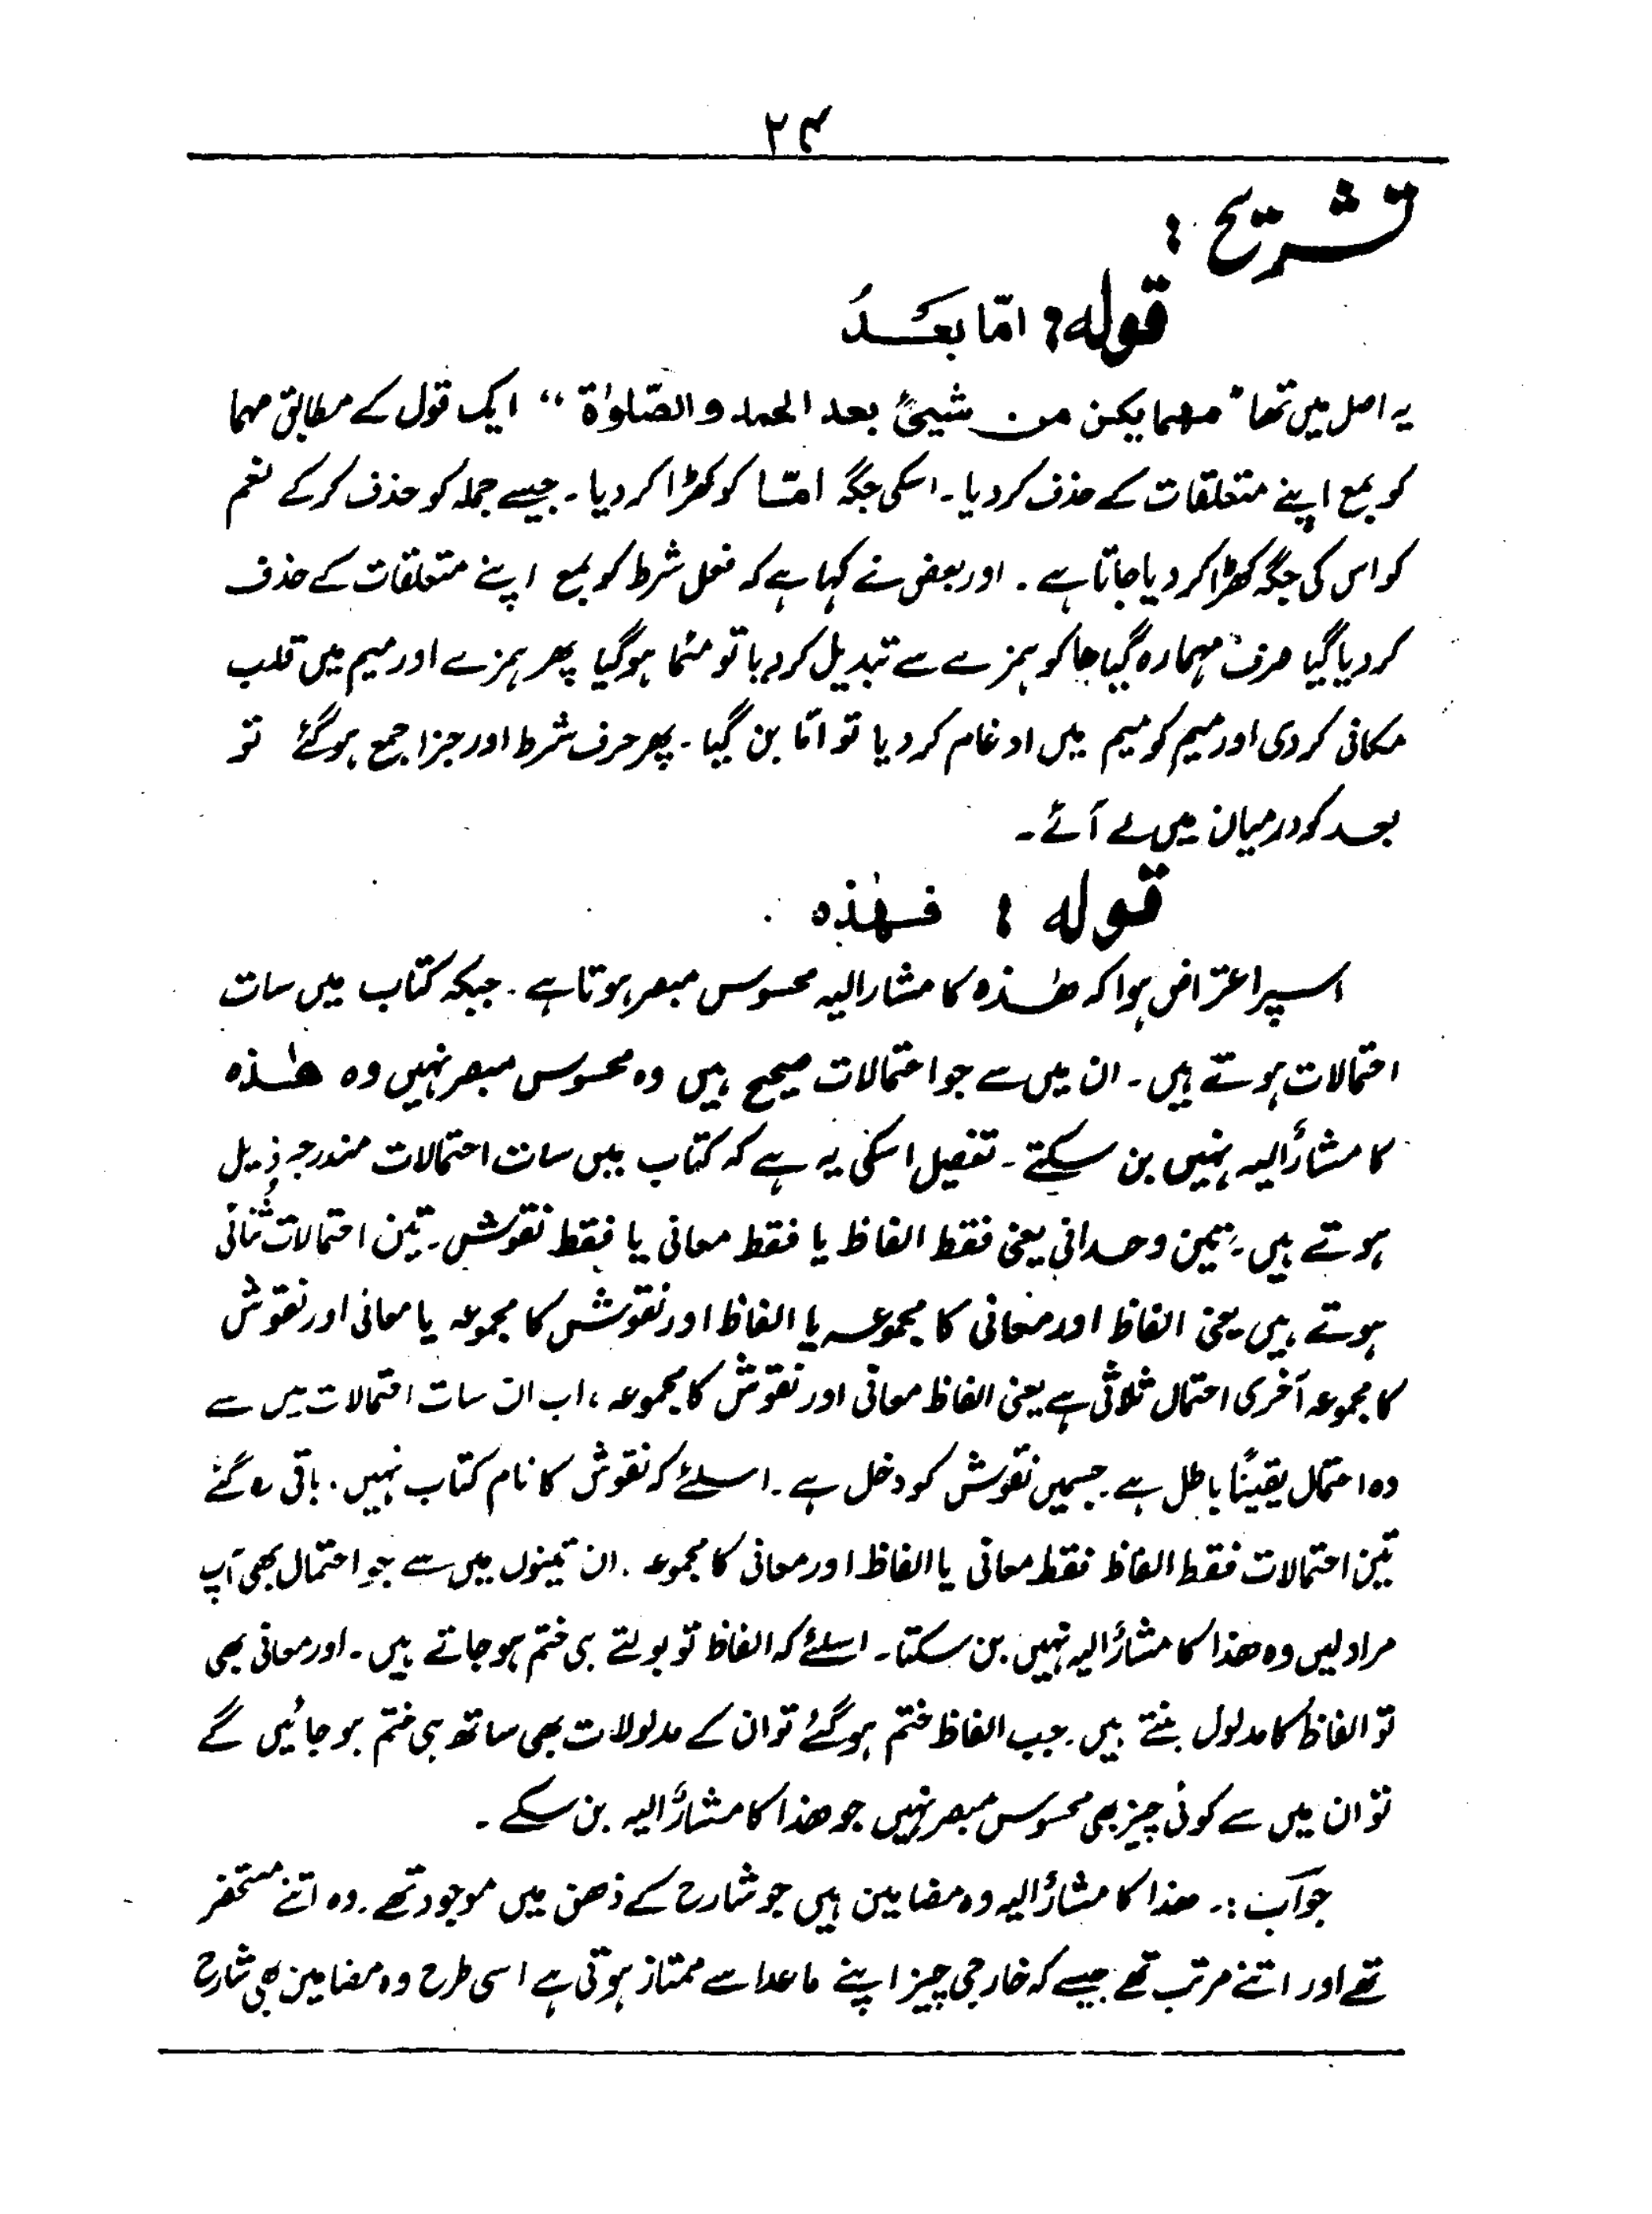 ۲۴
تشریح :
قولہ : امّا بعدُ
یہ اصل میں تھا "مھما یکن من شیئٍ بعد الحمد والصّلوٰۃ" ایک قول کے مطابق مہما
کو بمع اپنے متعلقات کے حذف کر دیا ۔ اسکی جگہ امّا کو کھڑا کر دیا ۔ جیسے جملہ کو حذف کر کے نعم
کو اس کی جگہ کھڑا کر دیا جاتا ہے ۔ اور بعض نے کہا ہے کہ فعل شرط کو بمع اپنے متعلقات کے حذف
کر دیا گیا صرف مہما رہ گیا ھا کو ہمزے سے تبدیل کر دیا تو مئما ہو گیا پھر ہمزے اور میم میں قلب
مکانی کر دی اور میم کو میم میں ادغام کر دیا تو امّا بن گیا ۔ پھر حرف شرط اور جزا جمع ہو گئے تو
بعد کو درمیان میں لے آئے ۔
قولہ : فھٰذہ
اسپر اعتراض ہوا کہ ھٰذہ کا مشار الیہ محسوس مبصر ہوتا ہے ۔ جبکہ کتاب میں سات
احتمالات ہوتے ہیں ۔ ان میں سے جو احتمالات صحیح ہیں وہ محسوس مبصر نہیں وہ ھٰذہ
کا مشارٌ الیہ نہیں بن سکتے ۔ تفصیل اسکی یہ ہے کہ کتاب میں سات احتمالات مندرجہ ذیل
ہوتے ہیں ۔ تین وحدانی یعنی فقط الفاظ یا فقط معانی یا فقط نقوش ۔ تین احتمالات ثنائی
ہوتے ہیں یعنی الفاظ اور معانی کا مجموعہ یا الفاظ اور نقوش کا مجموعہ یا معانی اور نقوش
کا مجموعہ آخری احتمال ثلاثی ہے یعنی الفاظ معانی اور نقوش کا مجموعہ ، اب ان سات احتمالات میں سے
وہ احتمال یقینًا باطل ہے جسمیں نقوش کو دخل ہے ۔ اسلئے کہ نقوش کا نام کتاب نہیں ۔ باقی رہ گئے
تین احتمالات فقط الفاظ فقط معانی یا الفاظ اور معانی کا مجموعہ ۔ ان تینوں میں سے جو احتمال بھی آپ
مراد لیں وہ ھذا کا مشارٌ الیہ نہیں بن سکتا ۔ اسلئے کہ الفاظ تو بولتے ہی ختم ہو جاتے ہیں ۔ اور معانی بھی
تو الفاظ کا مدلول بنتے ہیں ۔ جب الفاظ ختم ہو گئے تو ان کے مدلولات بھی ساتھ ہی ختم ہو جائیں گے
تو ان میں سے کوئی چیز بھی محسوس مبصر نہیں جو ھذا کا مشارٌ الیہ بن سکے ۔
جواب :۔ ھذا کا مشارٌ الیہ وہ مضامین ہیں جو شارح کے ذھن میں موجود تھے ۔ وہ اتنے مستحضر
تھے اور اتنے مرتب تھے جیسے کہ خارجی چیز اپنے ماعدا سے ممتاز ہوتی ہے اسی طرح وہ مضامین بھی شارح